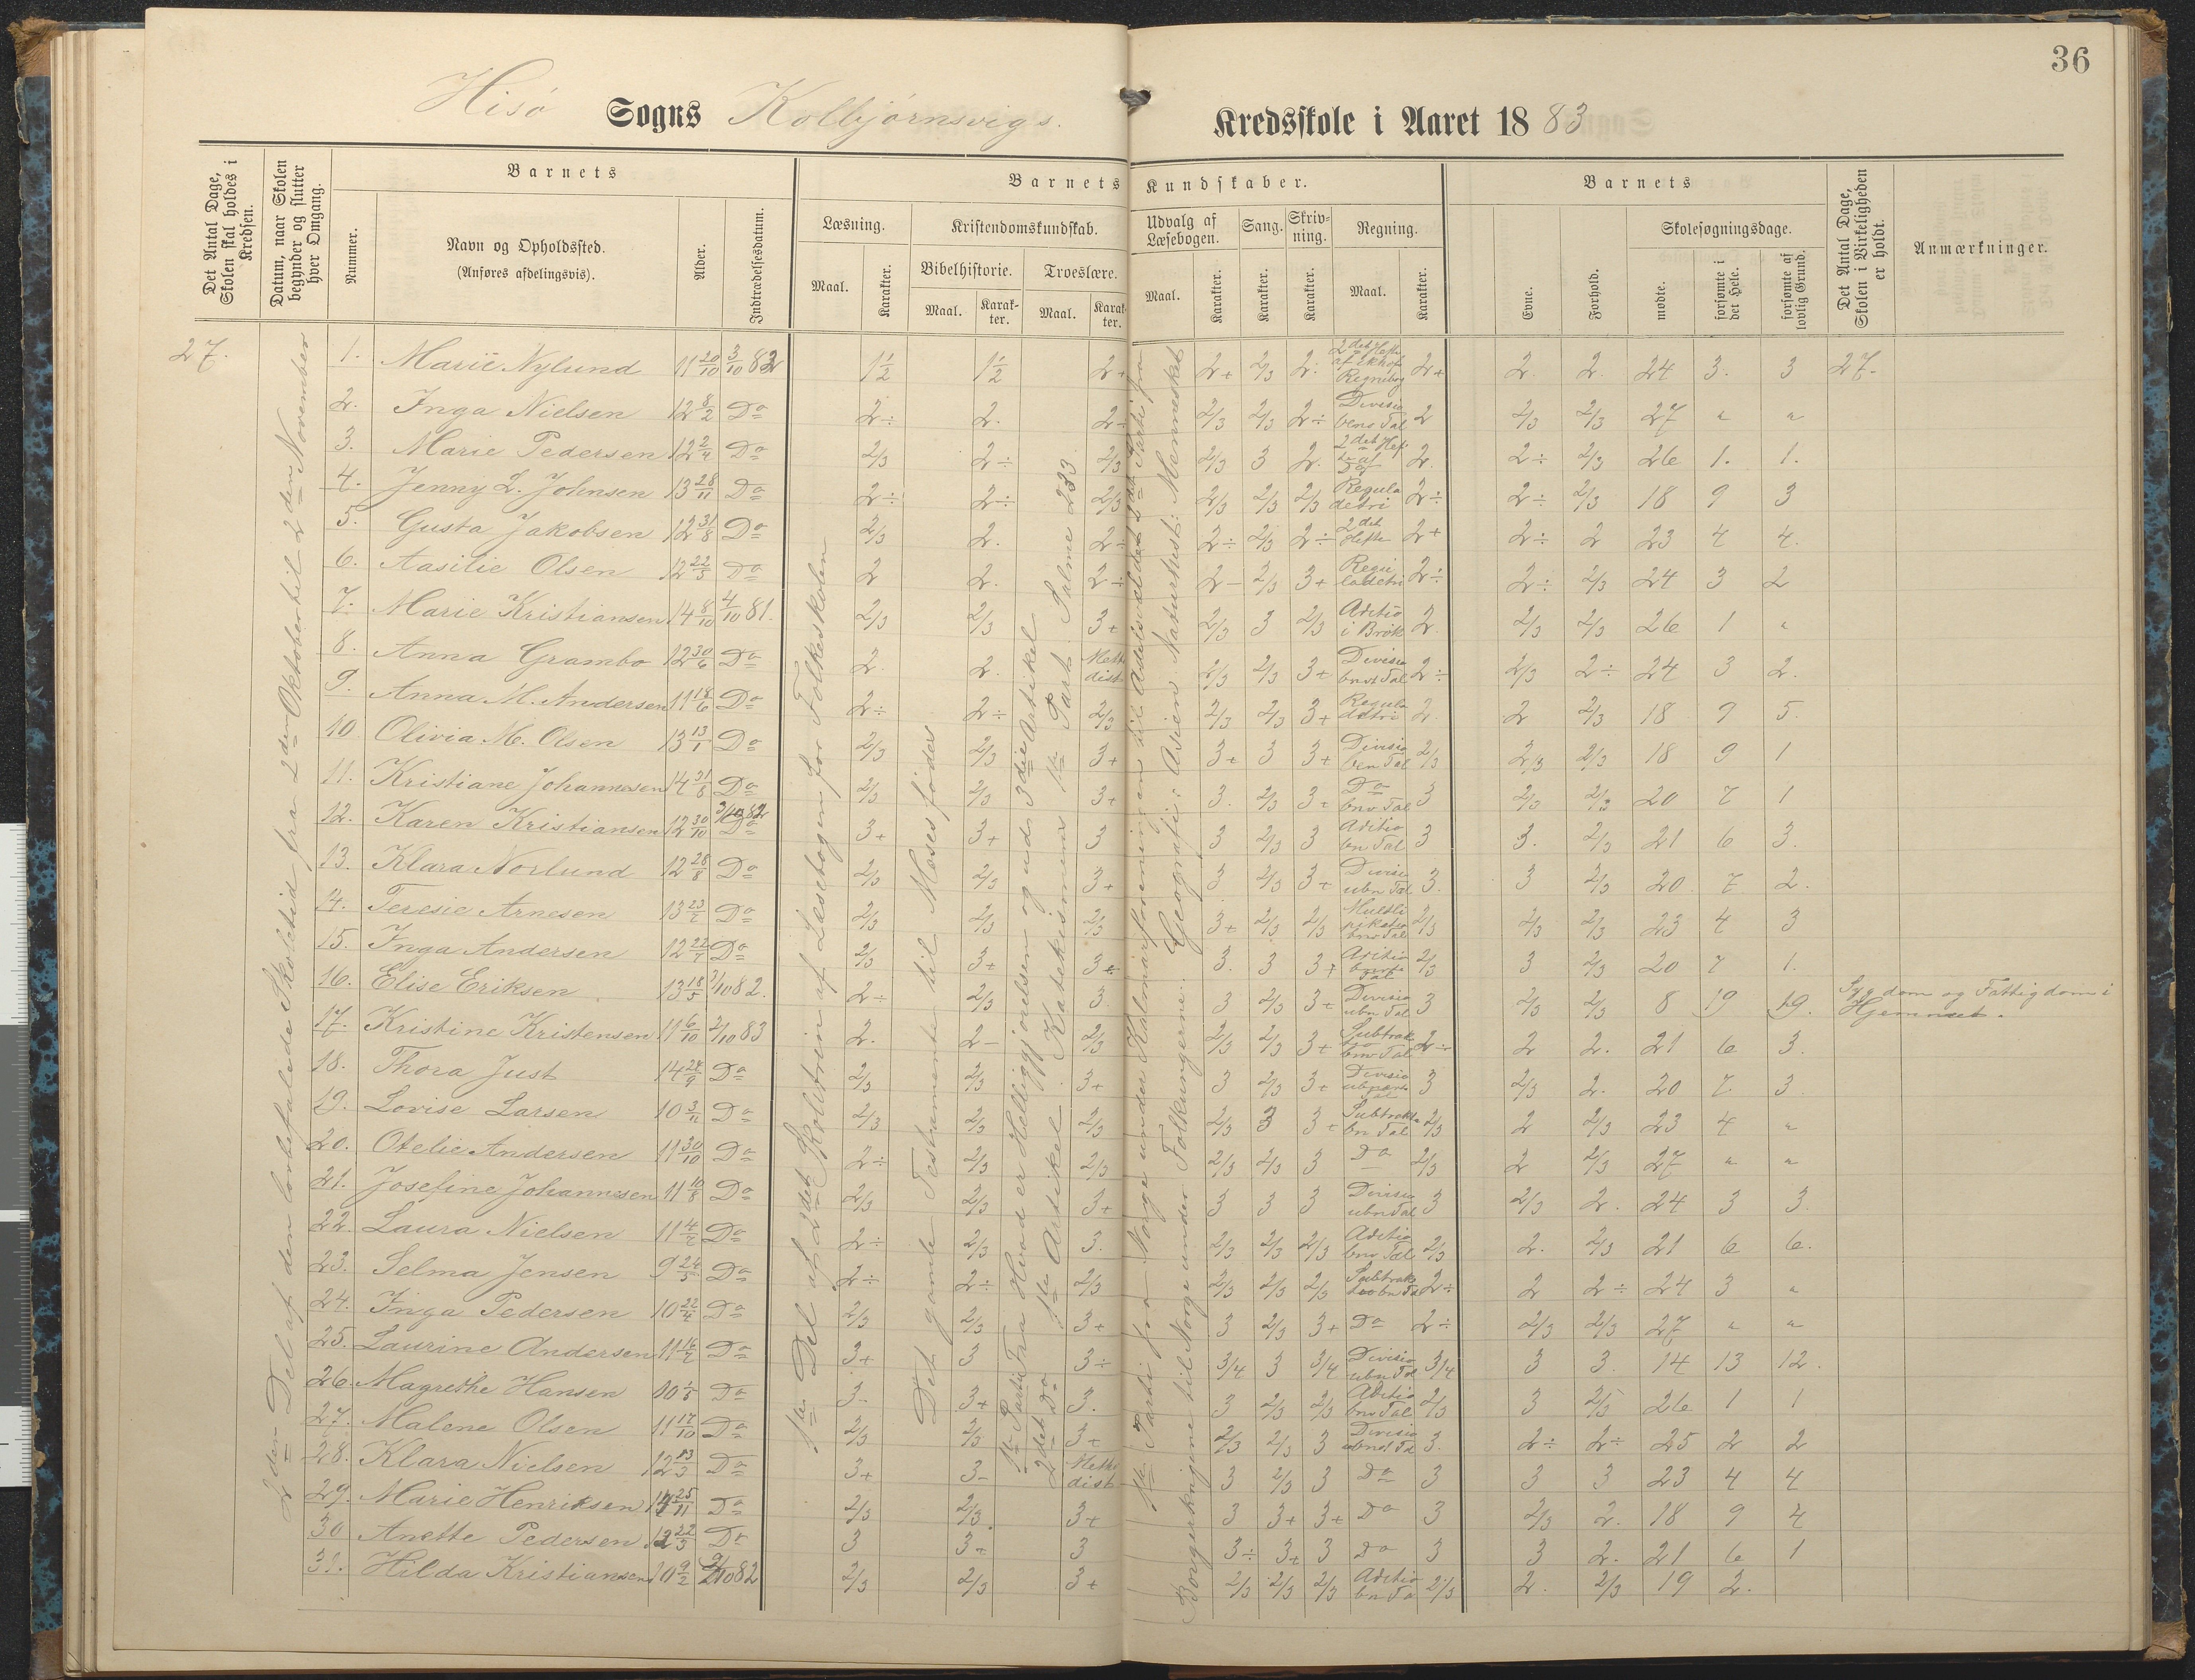 36
Hisø Sogns Kolbjørnsvigs. Kredsskole i Aaret 1883
Det Antal Dage, Skolen skal holdes i Kredsen.
Datum, naar Skolen begynder og slutter hver Omgang.
Barnets
Nummer.
Navn og Opholdssted.
(Anføres afdelingsvis).
Alder.
Indtrædelsesdatum.
Barnets Kundskaber.
Læsning.
Maal.
Karakter.
Kristendomskundskab.
Bibelhistorie.
Maal.
Karakter.
Troeslære.
Maal.
Karakter.
Udvalg af Læsebogen.
Maal.
Karakter.
Sang.
Karakter.
Skrivning.
Karakter.
Regning.
Maal.
Karakter.
Barnets
Evne.
Forhold.
Skolesøgningsdage.
mødte.
forsømte i det Hele.
forsømte af lovlig Grund.
Det Antal Dage, Skolen i Virkeligheden er holdt.
Anmærkninger.
27.
2den Del af den lovbefalede Skoletid fra 2den Oktober til 2den November
1ste Del af 2det Kolətrin af Læsebogen for Folkeskolen
Det gamle Testamente til Moses føders
1ste Parti Fra Hvad er Helliggjørelsen og ud 3die Artikel
2det Do 1ste Artikel. Katekismens 1ste Part. Salme 233
1. Marie Nylund 11 20/10 3/10 82 1½ 1½ 2+ 2+ 2/3 2. 2det Hefte af Ekhof Regnebog 2+ 2. 2. 24 3. 3 27.
2. Inga Nielsen 12 8/2 Do 2÷ 2. 2÷ 2/3 2/3 2÷ Divisio bens Tal 2 2/3 2/3 27 " "
3. Marie Pedersen 12 2/4 Do 2/3 2÷ 2/3 2/3 3 2. 2. 2÷ 2/3 26 1. 1.
4. Jenny L. Johnsen 13 28/11 Do 2÷ 2÷ 2/3 2/3 2/3 2/3 Regula detri 2÷ 2÷ 2/3 18 9 3
5. Gusta Jakobsen 12 31/8 Do 2/3 2. 2÷ 2÷ 2/3 2÷ 2det Hefte 2+ 2÷ 2 23 4 4.
6. Aasilie Olsen 12 22/5 Do 2 2. 2÷ 2- 2/3 3+ Regu ladetri 2÷ 2÷ 2/3 24 3 2
7. Marie Kristiansen 14 8/10 4/10 81. 2/3 2/3 3+ 2/3 3 2/3 Aditio i Brøk 2. 2/3 2/3 26 1 "
8. Anna Grambo 12 30/6 Do 2. 2. Metho dist 2/3 2/3 3+ Divisio bnst Tal 2÷ 2/3 2÷ 24 3 2.
9. Anna M. Andersen 11 18/6 Do 2÷ 2÷ 2/3 2/3 2/3 3+ Regula detri 2. 2 2/3 18 9 5.
10. Olivia M. Olsen 13 13/1 Do 2/3 2/3 3+ 3+ 3 3+ Divisio ben Tal 2/3 2/3 2/3 18 9 1
11. Kristiane Johannesen 14 31/8 Do 2/3 2/3 3+ 3. 2/3 3+ Do bnv Tal 3 2/3 2/3 20 7 1
12. Karen Kristiansen 12 30/10 3/10 82 Do 3+ 3+ 3 3 2/3 3 Aditio bn Tal 3 3. 2/3 21 6 3.
13. Klara Norlund 12 28/8 Do 2/3 2/3 3+ 3 2/3 3+ Divisi ubn Tal 3. 3 2/3 20 7 2.
14. Teresie Arnesen 13 23/7 Do 2/3 2/3 2/3 3+ 2/3 2/3 Multi pikatio bnv Tal 2/3 2/3 2/3 23 4 3
15. Inga Andersen 12 22/7 Do 2/3 3+ 3+ 3. 3 3+ Aditio Tal 2/3 3 2/3 20 7 1.
16. Elise Eriksen 13 18/5 3/10 82. 2÷ 2/3 3. 3 2/3 3+ Divisio ubn Tal 3 2/3 2/3 8 19 19. Sygdom og Fattigdom i Hjemmet.
17. Kristine Kristensen 11 6/10 2/10 83 2. 2- 2/3 2/3 2/3 3+ Subtrak tio bnv Tal 2÷ 2 2. 21 6 3.
18. Thora Just 14 28/9 Do 2/3 2/3 3+ 3 2/3 3+ Divisio Tal 3 2/3 2. 20 7. 3
19. Lovise Larsen 10 3/11 Do 2/3 2/3 2/3 2/3 3 3+ Subtrakt. bn Tal 2/3 2 2/3 23 4 "
20. Otelie Andersen 11 30/10 Do 2÷ 2/3 2/3 2/3 2/3 3 Do 2/3 2 2/3 27 " "
21. Josefine Johannesen 11 10/8 Do 2/3 2/3 3+ 3 3 3 Divisio ubn Tal 3 2/3 2. 24 3 3.
22. Laura Nielsen 11 4/7 Do 2÷ 2/3 3. 2/3 2/3 2/3 Aditio bnv Tal 2/3 2. 2/3 21 6 6.
23. Selma Jensen 9 24/5 Do 2÷ 2÷ 2/3 2/3 2/3 2/3 Subtrak tio bn Ta 2÷ 2 2÷ 24 3 "
24. Inga Pedersen 10 22/4 Do 2/3 2/3 3+ 3 2/3 3+ Do 2÷ 2/3 2/3 27 " "
25. Laurine Andersen 11 16/7 Do 3+ 3 3÷ 3/4 3 3/4 Divisio ubn Tal 3/4 3 3. 14 13 12.
26. Magrethe Hansen 10 1/8 Do 3- 3+ 3. 3 2/3 2/3 Aditio bnv Tal 2/3 3 2/3 26 1 1
27. Malene Olsen 11 17/10 Do 2/3 2/3 3+ 2/3 2/3 3 Divisio ubnd Ta 3. 2÷ 2÷ 25 2 2
28. Klara Nielsen 12 13/3 Do 3+ 3- Metho dist 3 2/3 3 Do 3 3 3 23 4 4
29. Marie Henriksen 14 25/11 Do 2/3 2/3 3+ 3 3+ 3+ Do 3 2/3 2. 18 9 4
30 Anette Pedersen 12 22/3 Do 3 3+ 3 3÷ 3+ 3 Do 3 3 2. 21 6 1
31. Hilda Kristiansen 10 9/2 2/10 82 2/3 2/3 3+ 2/3 2/3 2/3 Aditio bn Ta 2/3 2. 2/3 19 2.
1ste Parti fra Norge under Kalmarforeningen til Adelsvældet 2det Parti fra
Borgerkrigene til Norge under Folkungerne. Geografi: Asien. Naturhist: Mennesket